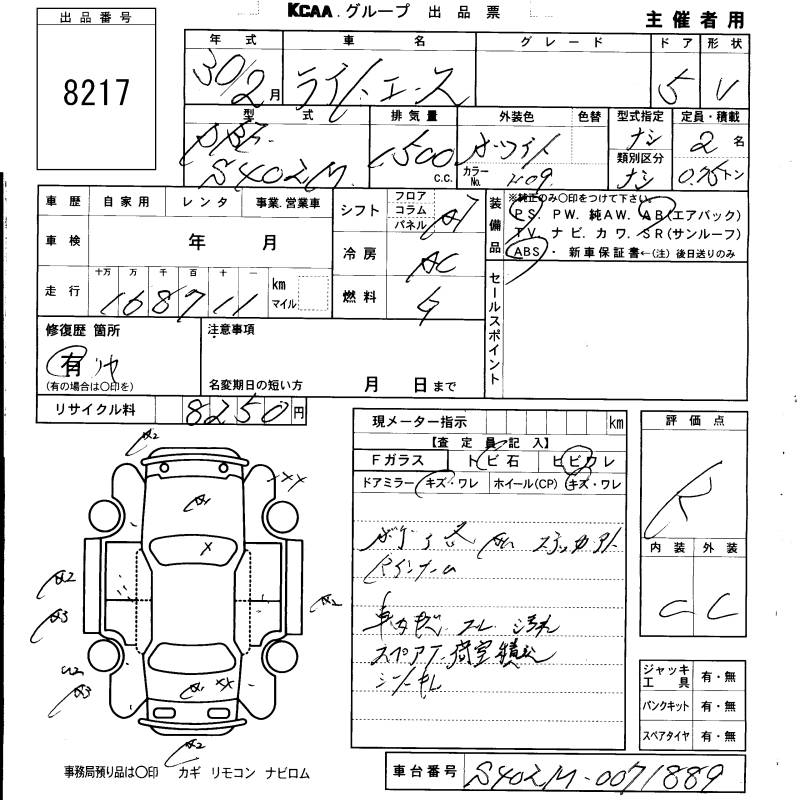 KCAA グループ 出品票
主催者用
出品番号
8217
年式 車名 グレード ドア 形状
30/2月 ライトエース 5 V
型式 排気量 外装色 色替 型式指定 定員・積載
S402M 1500 c.c. カラーNo. ナシ 2名
類別区分
ナシ 0.75トン
車歴 自家用 レンタ 事業.営業車
シフト フロア コラム パネル AT
装備品 ※純正のみ〇印をつけて下さい。
PS. PW. 純AW. AB(エアバック)
TV. ナビ. カワ. SR(サンルーフ)
ABS・ 新車保証書←(注)後日送りのみ
車検 年 月
冷房 AC
十万 万 千 百 十 一
走行 168711 km マイル
燃料 G
セールスポイント
修復歴 箇所
有
(有の場合は〇印を)
注意事項
名変期日の短い方 月 日まで
リサイクル料 8250円
現メーター指示 km
【査定員記入】
Fガラス トビ石 ヒビワレ
ドアミラー キズ・ワレ ホイール(CP) キズ・ワレ
評価点
R
内装 外装
C C
A2
A1
XX
X
A2
A3
A2
A3
A1 XX
A2
車内 コゲ 汚れ
スペアT.荷室積込
シートキレ
ジャッキ工具 有・無
パンクキット 有・無
スペアタイヤ 有・無
事務局預り品は〇印 カギ リモコン ナビロム
車台番号 S402M-0071889